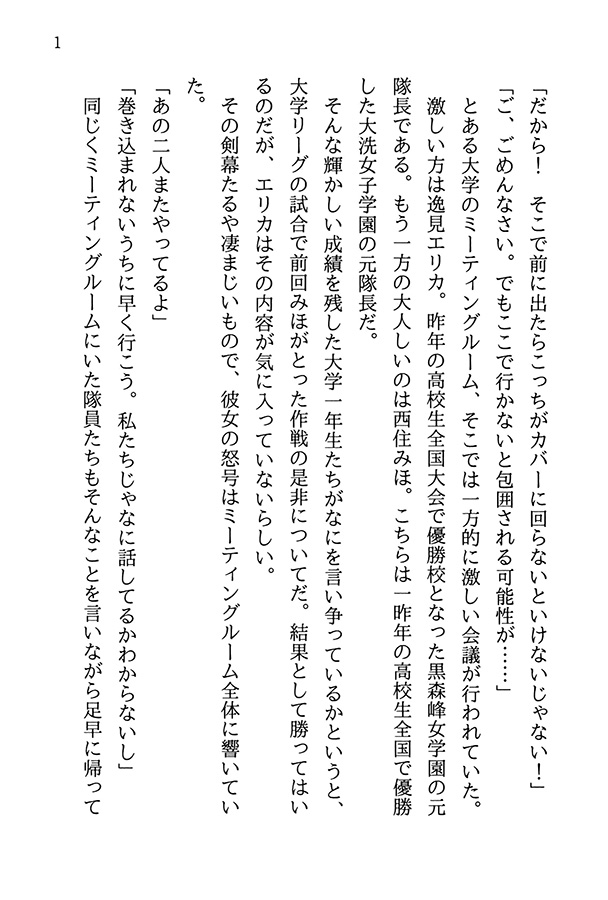 1
「だから！　そこで前に出たらこっちがカバーに回らないといけないじゃない！」
「ご、ごめんなさい。でもここで行かないと包囲される可能性が……」
　とある大学のミーティングルーム、そこでは一方的に激しい会議が行われていた。
　激しい方は逸見エリカ。昨年の高校生全国大会で優勝校となった黒森峰女学園の元
隊長である。もう一方の大人しいのは西住みほ。こちらは一昨年の高校生全国で優勝
した大洗女子学園の元隊長だ。
　そんな輝かしい成績を残した大学一年生たちがなにを言い争っているかというと、
大学リーグの試合で前回みほがとった作戦の是非についてだ。結果として勝ってはい
るのだが、エリカはその内容が気に入っていないらしい。
　その剣幕たるや凄まじいもので、彼女の怒号はミーティングルーム全体に響いてい
た。
「あの二人またやってるよ」
「巻き込まれないうちに早く行こう。私たちじゃなに話してるかわからないし」
　同じくミーティングルームにいた隊員たちもそんなことを言いながら足早に帰って